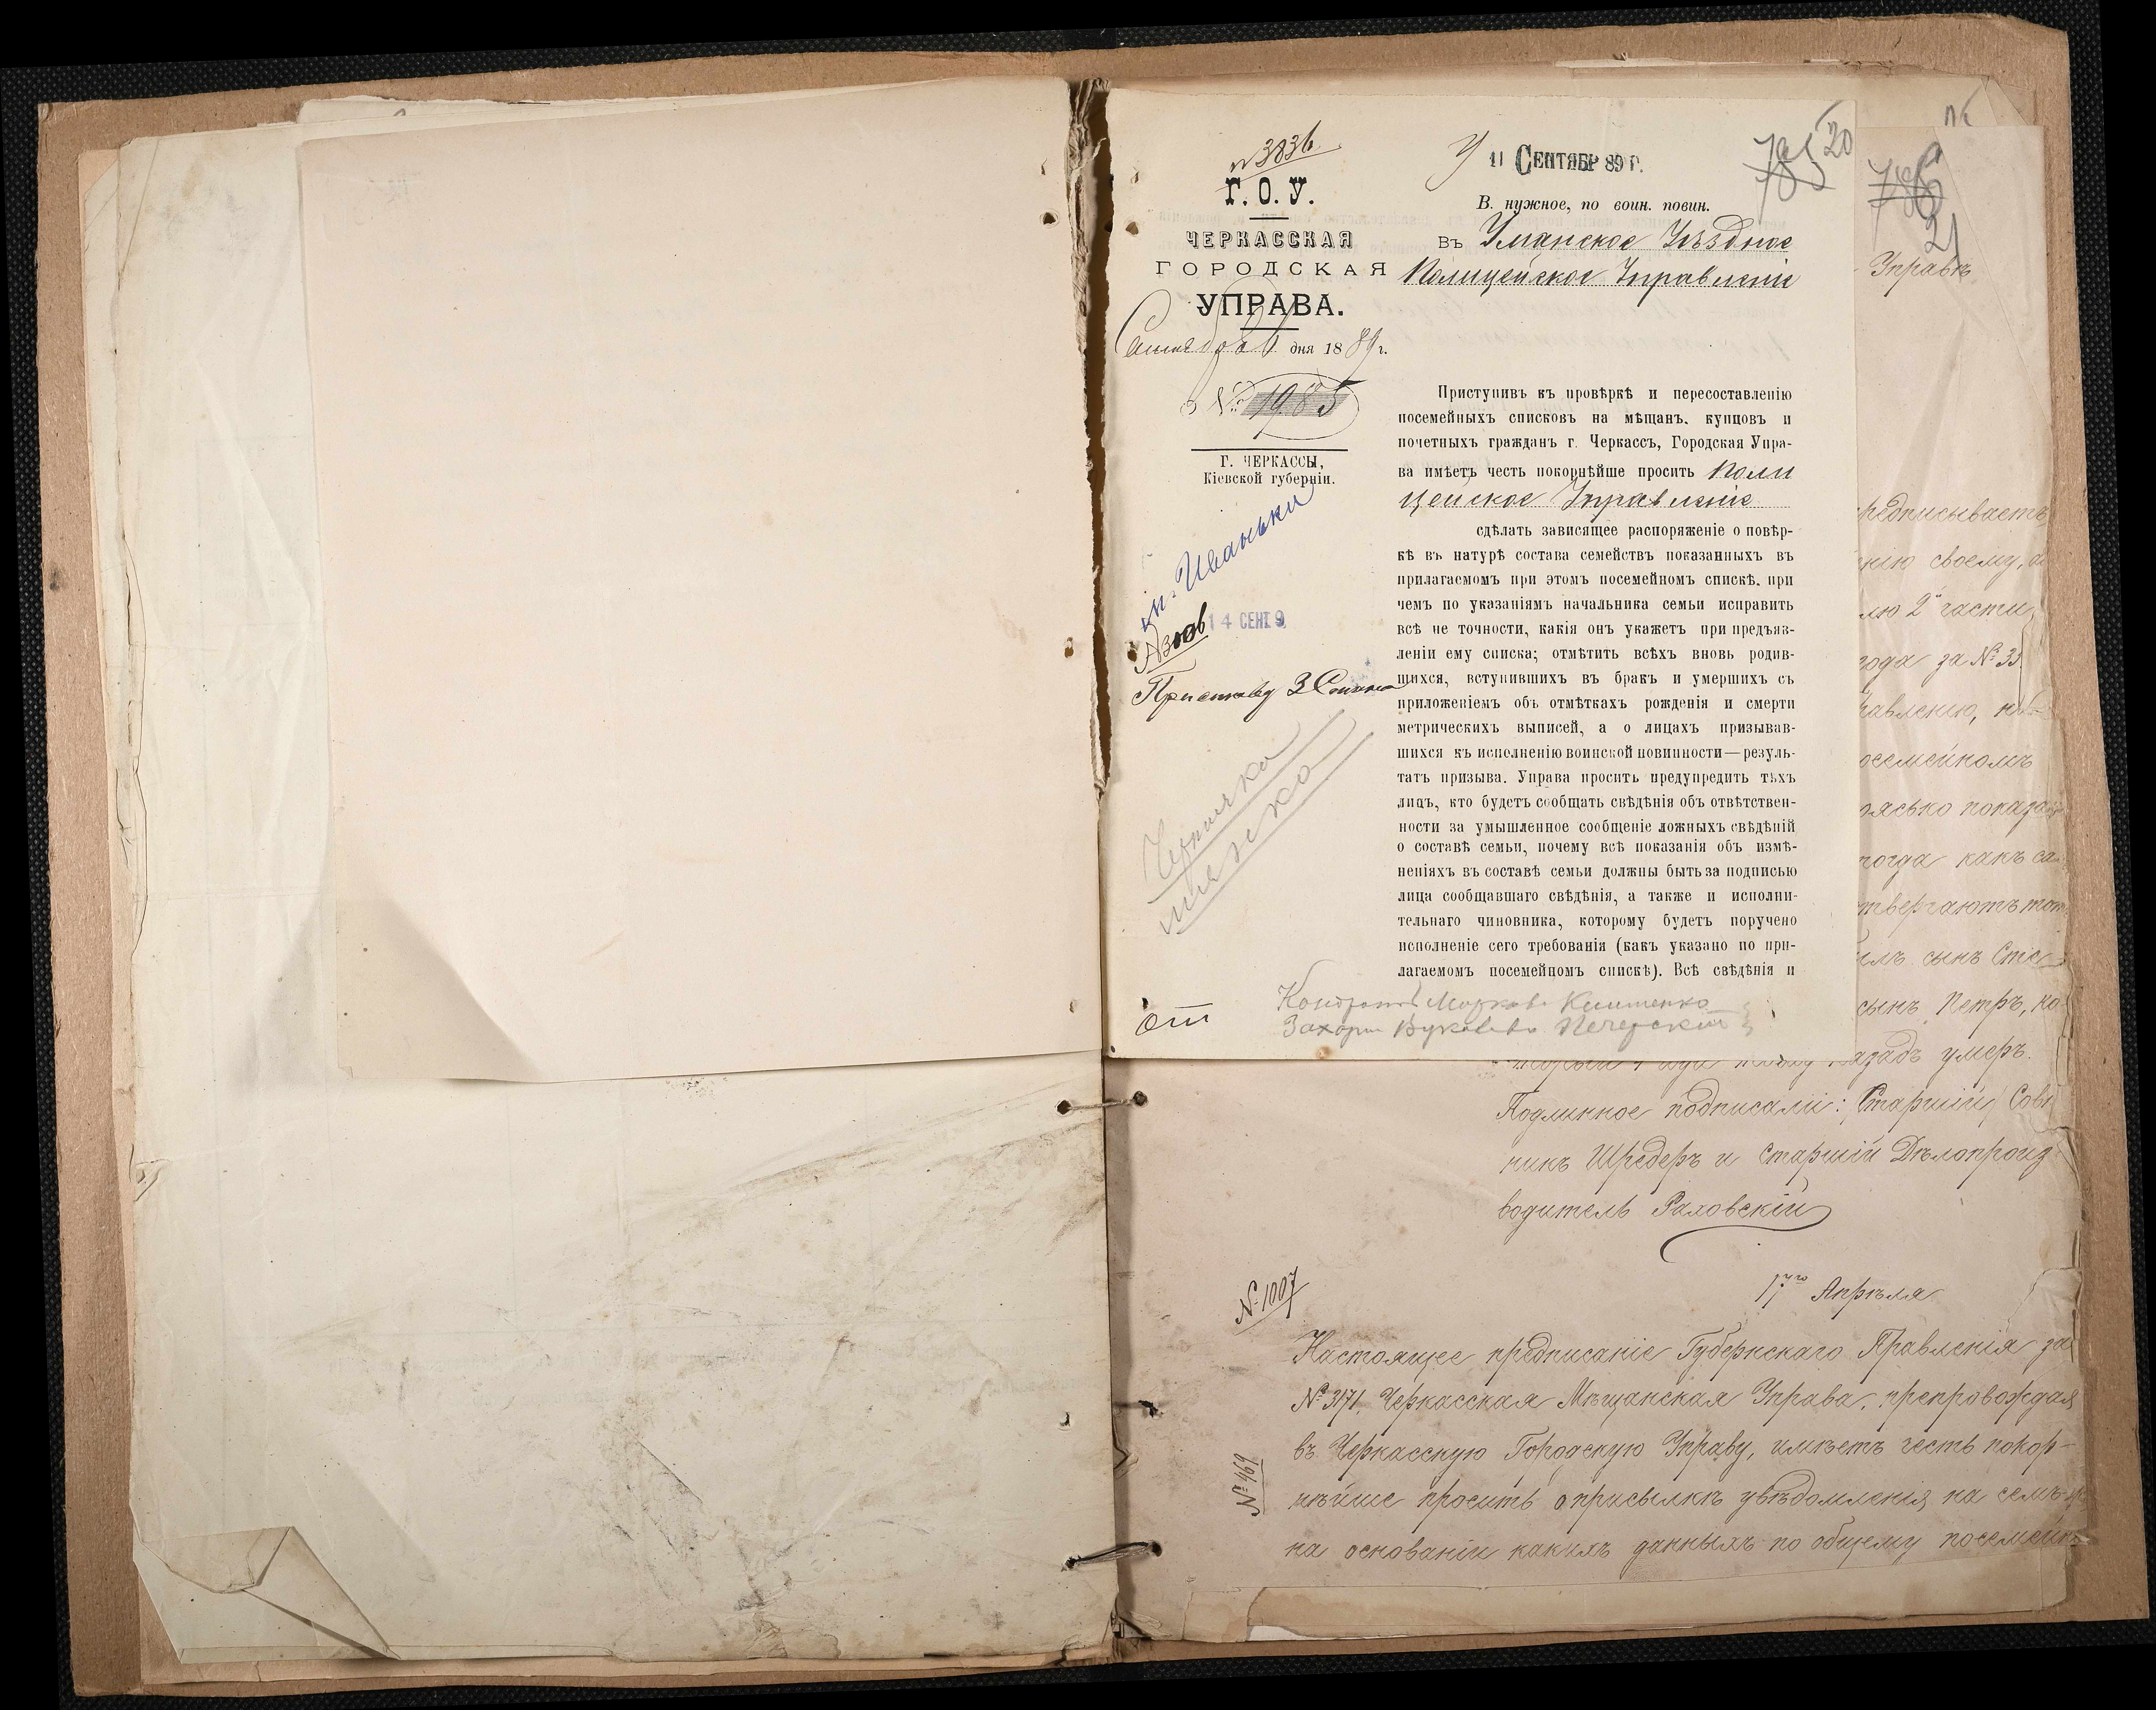 № 3836
Г. О. У.
ЧЕРКАССКАЯ
ГОРОДСКАЯ
УПРАВА.
дня 1889 г.
№ 1985
Г. ЧЕРКАССЫ,
Кіевской губерніи.
м. Иваньки
14 СЕНТ. 9
Приставу 3 Стана
11 СЕНТЯБР 89 Г.
785
20
В. нужное, по воин. повин.
Въ Уманское Уѣздное
Полицейское Управленіе
Приступивъ къ провѣркѣ и пересоставленію
посемейныхъ списковъ на мѣщанъ, купцовъ и
почетныхъ гражданъ г. Черкассъ, Городская Упра-
ва имѣетъ честь покорнѣйше просить Поли
цейское Управленіе
сдѣлать зависящее распоряженіе о повѣр-
кѣ въ натурѣ состава семействъ показанныхъ въ
прилагаемомъ при этомъ посемейномъ спискѣ, при
чемъ по указаніямъ начальника семьи исправить
всѣ не точности, какія онъ укажетъ при предъяв-
леніи ему списка; отмѣтить всѣхъ вновь родив-
шихся, вступившихъ въ бракъ и умершихъ съ
приложеніемъ объ отмѣткахъ рожденія и смерти
метрическихъ выписей, а о лицахъ призывав-
шихся къ исполненію воинской повинности—резуль-
татъ призыва. Управа проситъ предупредить тѣхъ
лицъ, кто будетъ сообщать свѣдѣнія объ отвѣтствен-
ности за умышленное сообщеніе ложныхъ свѣдѣній
о составѣ семьи, почему всѣ показанія объ измѣ-
неніяхъ въ составѣ семьи должны быть за подписью
лица сообщавшаго свѣдѣнія, а также и исполни-
тельнаго чиновника, которому будетъ поручено
исполненіе сего требованія (какъ указано по при-
лагаемомъ посемейномъ спискѣ). Всѣ свѣдѣнія и
786
21
Управѣ
предписываетъ
нію своему,
лю 2й части
года за № 33
равленію,
осемейномъ
тогда какъ
твергаютъ
сынъ
сынъ Петръ, ко
назадъ умеръ.
Подлинное подписали: Старшій Совѣт
никъ Шредеръ и Старшій Дѣлопроиз
водитель Раховскій
№ 1007
17го Апрѣля
Настоящее предписаніе Губернскаго Правленія за
№ 3171, Черкасская Мѣщанская Управа, препровождая
въ Черкасскую Городскую Управу, имѣетъ честь покор-
нѣйше просить о присылкѣ увѣдомленія на семъ же
№ 469
на основаніи какихъ данныхъ по общему посемейн